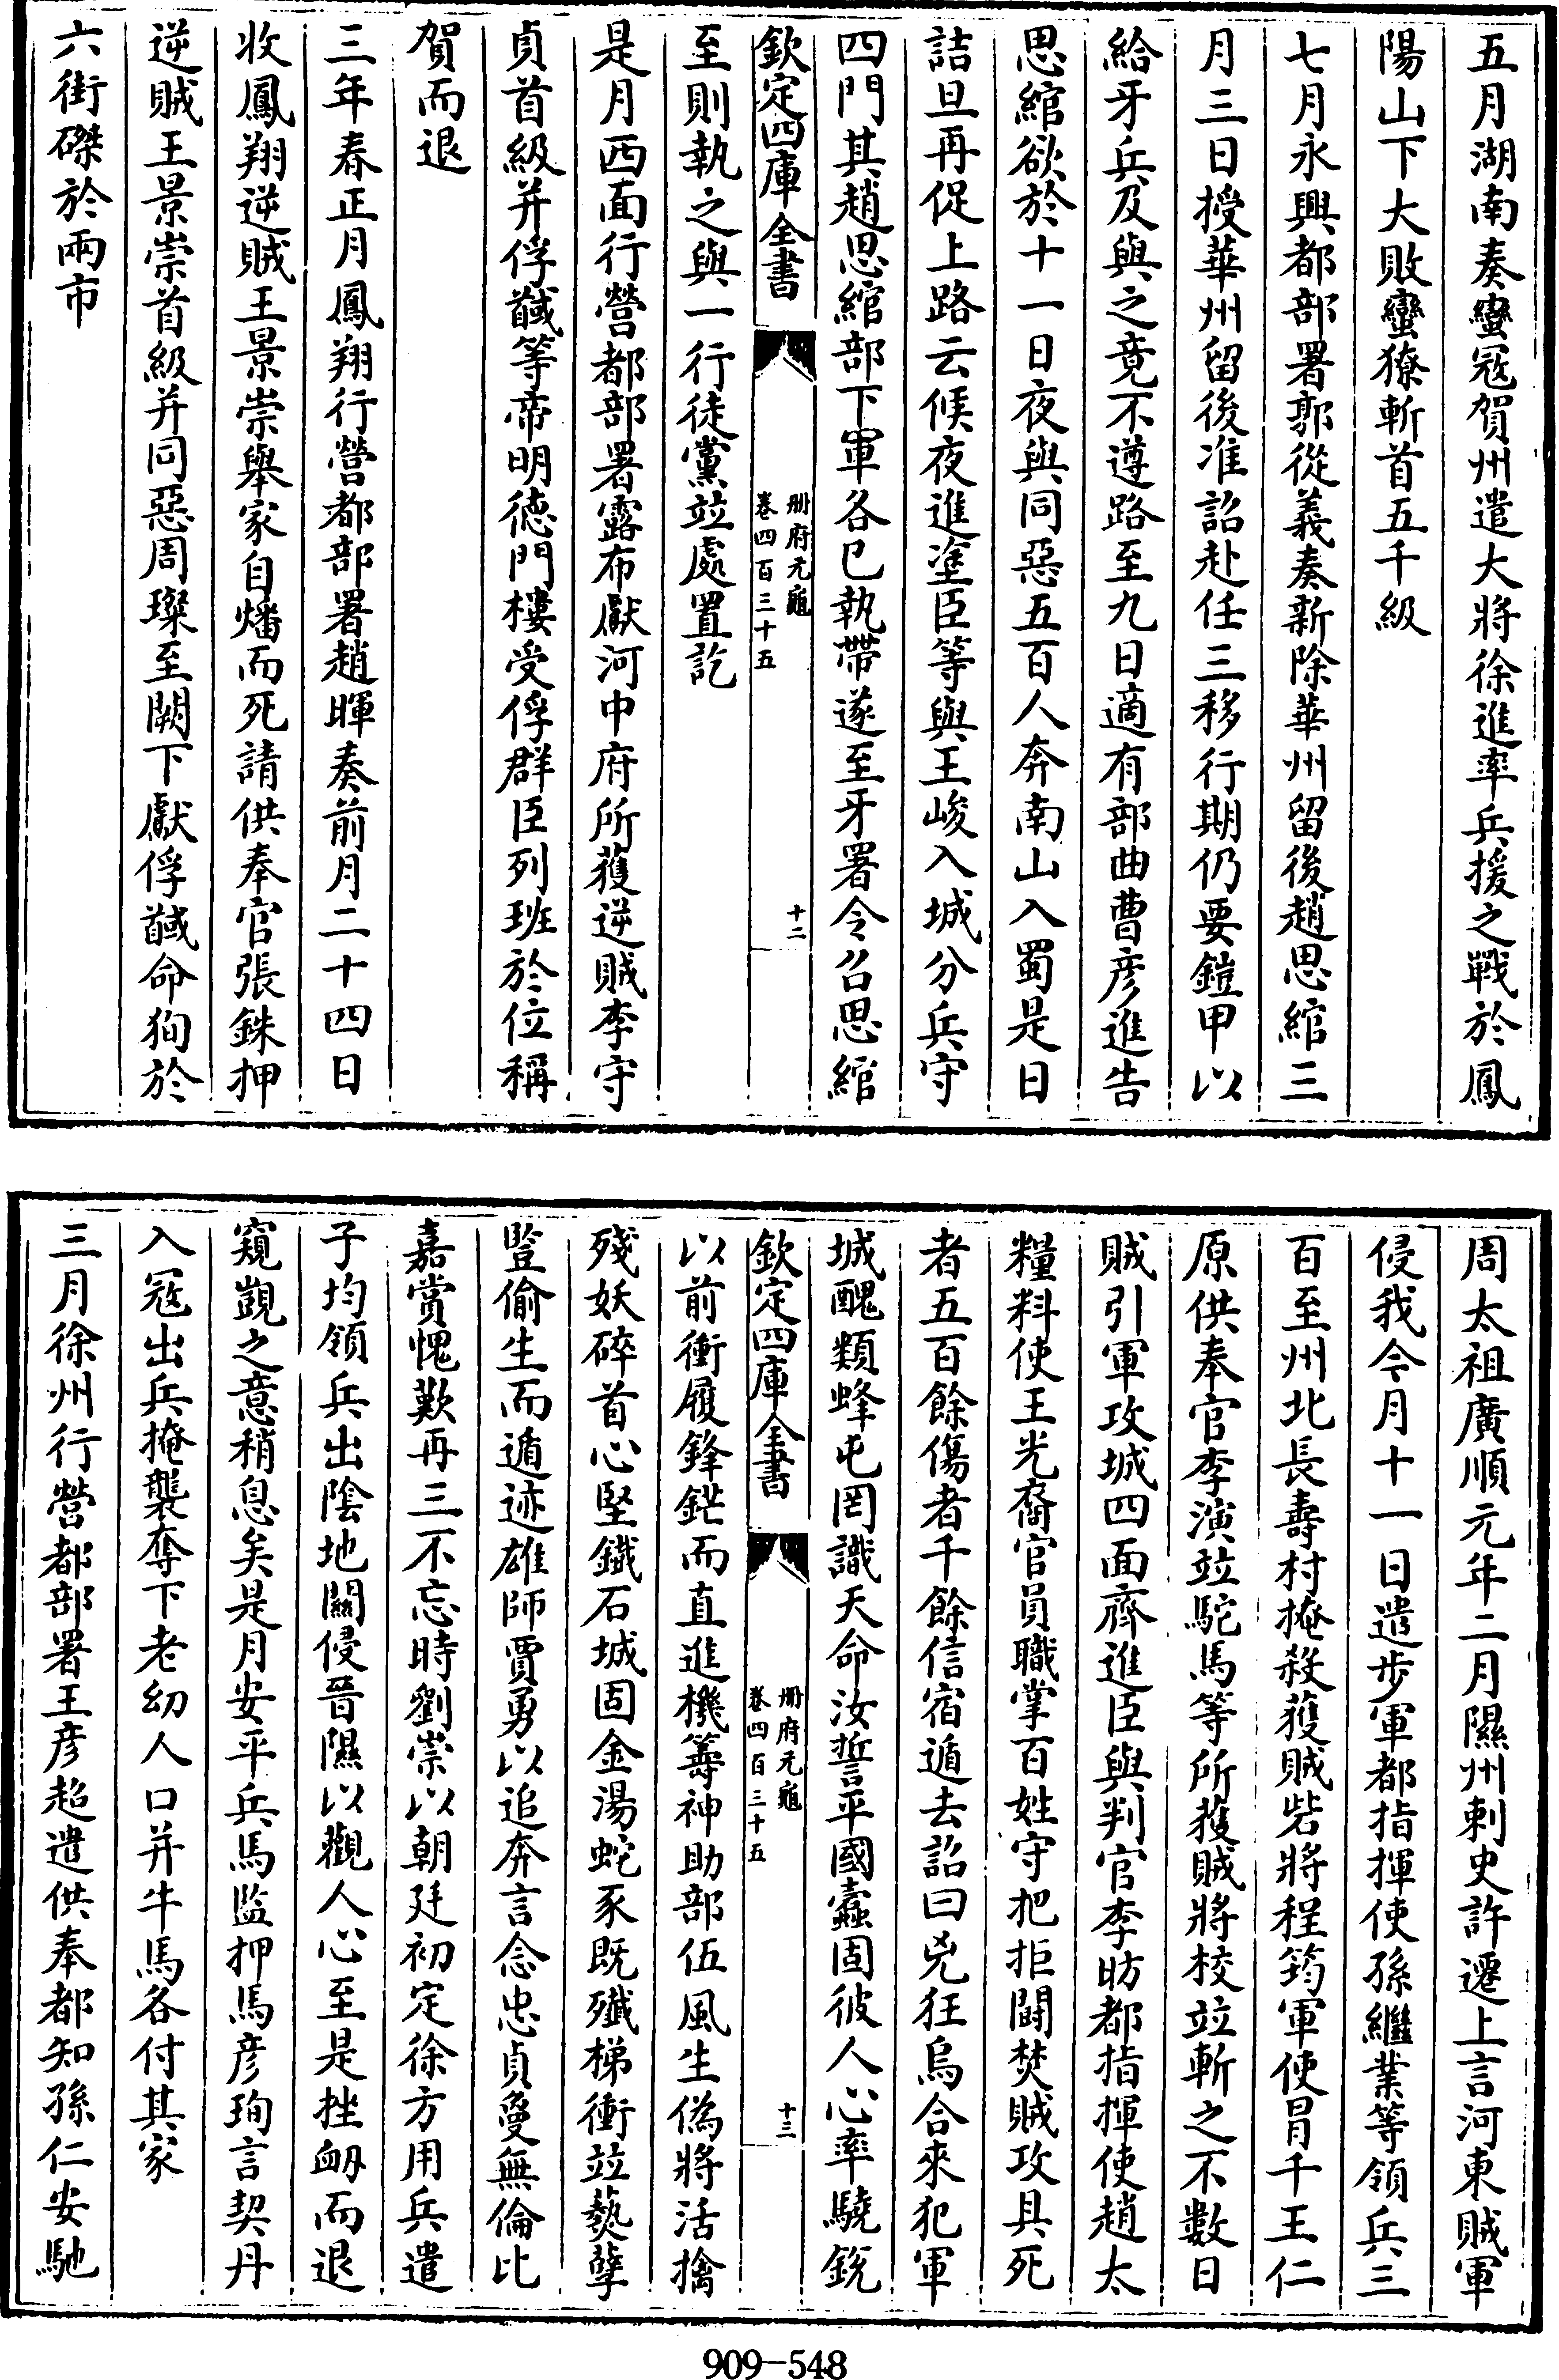 五月湖南奏蠻冦賀州遣大將徐進率兵援之戰於鳳
陽山下大敗蠻獠斬首五千級
七月永興都部署郭從義奏新除華州留後趙思綰三
月三日授華州留後准詔赴任三移行期仍要鎧甲以
給牙兵及與之竟不遵路至九日適有部曲曹彦進告
思綰欲於十一日夜與同惡五百人奔南山入蜀是日
詰旦再促上路云候夜進塗臣等與王峻入城分兵守
四門其趙思綰部下軍各已執帶遂至牙署令召思綰
欽定四庫全書
册府元龜
卷四百三十五
十二
至則執之與一行徒黨竝處置訖
是月西面行營都部署露布獻河中府所獲逆賊李守
貞首級并俘馘等帝明德門樓受俘群臣列班於位稱
賀而退
三年春正月鳳翔行營都部署趙暉奏前月二十四日
收鳳翔逆賊王景崇舉家自燔而死請供奉官張銖押
逆賊王景崇首級并同惡周璨至闕下獻俘馘命狥於
六街磔於兩市
周太祖廣順元年二月隰州刺史許遷上言河東賊軍
侵我今月十一日遣步軍都指揮使孫繼業等領兵三
百至州北長壽村掩殺獲賊砦將程筠軍使冐千王仁
原供奉官李演竝駝馬等所獲賊將校竝斬之不數日
賊引軍攻城四面齊進臣與判官李昉都指揮使趙太
糧料使王光裔官員職掌百姓守把拒鬭焚賊攻具死
者五百餘傷者千餘信宿遁去詔曰兇狂烏合來犯軍
城醜類蜂屯罔識天命汝誓平國蠹固彼人心率驍銳
欽定四庫全書
册府元龜
卷四百三十五
十三
以前衝履鋒鋩而直進機籌神助部伍風生偽將活擒
殘妖碎首心堅鐵石城固金湯蛇豕既殱梯衝竝爇孽
豎偷生而遁迹雄師賈勇以追奔言念忠貞曼無倫比
嘉賞愧歎再三不忘時劉崇以朝廷初定徐方用兵遣
子均領兵出陰地關侵晉隰以觀人心至是挫衂而退
窺覬之意稍息矣是月安平兵馬監押馬彦珣言契丹
入冦出兵掩襲奪下老幼人口并牛馬各付其家
三月徐州行營都部署王彦超遣供奉都知孫仁安馳
909-548